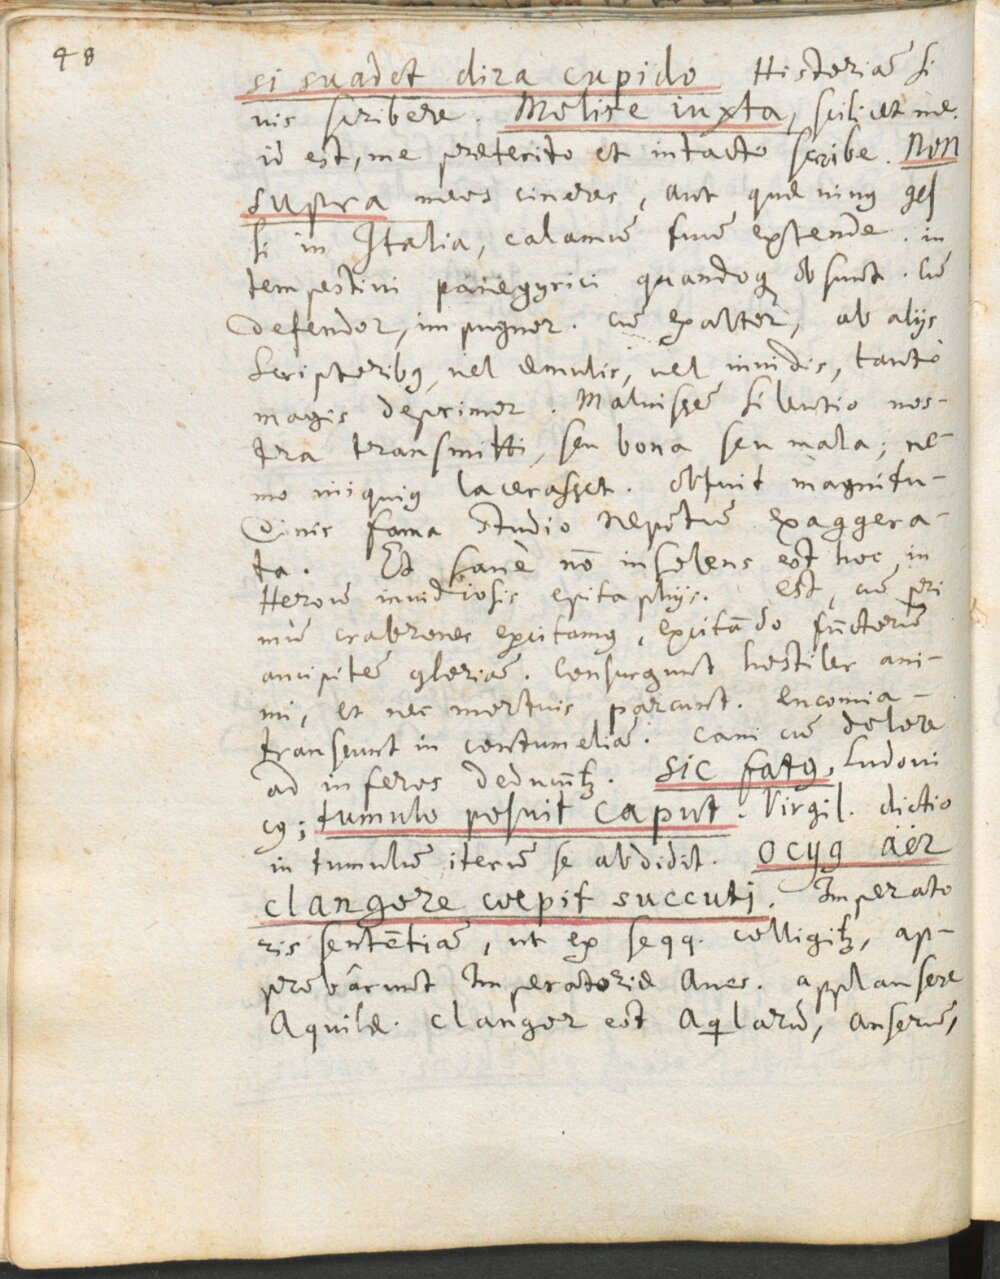 48
si suadet dira cupido Historiā si
vis scribere. Molire iuxta, scilicet me.
id est, me præterito et intacto scribe. Non
supra meos cineres, aut quæ nimꝰ ges
si in Italia, calamū tuū extende. in
tempestivi panegyrici quandoqꝫ obsunt. Cū
defendor, impugnor. cū exaltor, ab alijs
scriptoribꝰ, vel æmulis, vel invidis, tantò
magis deprimor. Maluissē silentio nos-
tra transmitti, seu bona seu mala; ne-
mo iniquiꝰ lacerasset. Obfuit magnitu-
dinis fama studio Nepotum exaggera-
ta. Et sanè nō insolens est hoc, in
Heroū invidiosis epitaphijs. est, cū pri
mū crabrones excitamꝰ, excitādo functorū
ancipitē gloriā. Consurgunt hostiles ani-
mi, et nec mortuis parcunt. encomia-
transeunt in contumeliā. Cani cū dolore
ad inferos deducūtꝫ. Sic fatꝰ, Ludovi
cꝰ; tumulo posuit caput. Virgil. dictio
in tumulū iterū se abdidit. ocyꝰ äër
clangore coepit succuti. Imperato
ris sentētiā, ut ex seqq. colligitꝫ, ap-
probârunt Imperatoriæ Aves. applausere
Aquilæ. Clangor est Aqlarū, anserū,